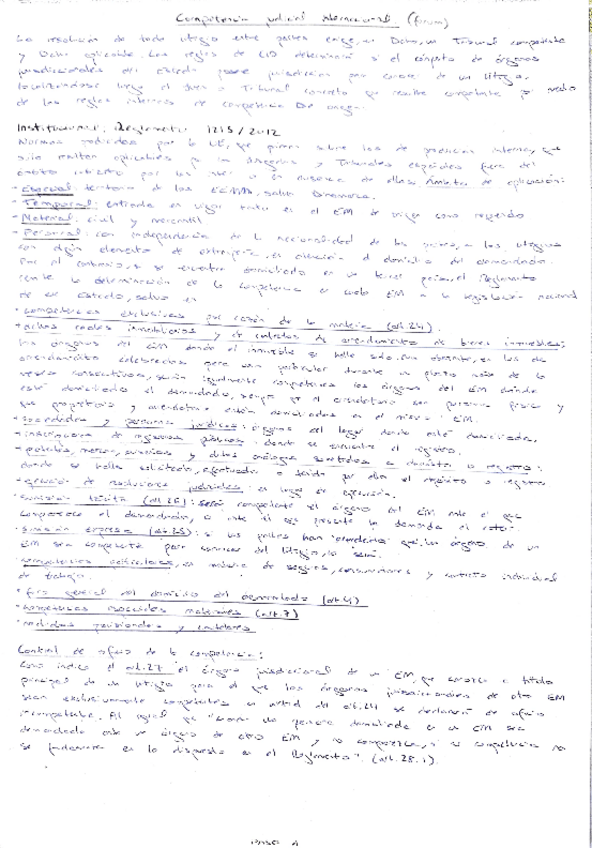 Competencia judicial internacional (forum)
La resolución de todo litigio entre partes exige, en Dcho, un Tribunal competente
y Dcho aplicable. Las reglas de CJI determinará si el conjunto de órganos
jurisdiccionales del Estado posee jurisdicción para conocer de un litigio,
localizándose luego el Tribunal concreto que resulte competente por medio
de las reglas internas de competencia
Institucional: Reglamento 1215/2012
Normas por la UE, que sobre las de interna, que
sólo resultan aplicables los Juzgados y Tribunales españoles fuera del
ámbito por o en ausencia de ellas. Ámbito de aplicación:
- Espacial: territorio de los EEMM, salvo Dinamarca.
- Temporal: entrada en vigor tanto en el EM de origen como requerido
- Material: civil y mercantil
- Personal: con independencia de la nacionalidad de las partes, a los litigios
con algún elemento de extranjería, en atención al domicilio del demandado.
Por el contrario, si se encuentra domiciliado en un tercer país, el Reglamento
remite la determinación de la competencia en cada EM a la legislación nacional
de ese Estado, salvo en
- competencias exclusivas por razón de la materia (art. 24).
- dchos reales inmobiliarios y de contratos de arrendamiento de bienes inmuebles:
los órganos del EM donde el inmueble se halle sito. No obstante, en los de
arrendamientos celebrados para uso particular durante un plazo máx de 6
meses consecutivos, serán igualmente competentes los órganos del EM donde
esté domiciliado el demandado, siempre que el arrendatario sea persona física y
que propietario y arrendatario estén domiciliados en el mismo EM.
- sociedades y personas jurídicas: órganos del lugar donde esté domiciliada.
- inscripciones de registros públicos: donde se encuentre el registro.
- patentes, marcas, y dchos análogos sometidos a depósito o registro:
donde se halle solicitado, efectuado o tenido por efectuado el depósito o registro
- ejecución de resoluciones judiciales: en lugar de ejecución.
- sumisión tácita (art. 26): será competente el órgano del EM ante el que
comparezca el demandado, o ante el que presente la demanda el actor
- sumisión expresa (art. 25): si las partes han acordado que un órgano de un
EM sea competente para conocer del litigio, lo será.
- competencias especiales, en materia de seguros, consumidores y contrato individual
de trabajo.
- foro general del domicilio del demandado (art. 4)
- competencias especiales (art. 7)
- medidas provisionales y cautelares
Control de oficio de la competencia:
Como indica el art. 27 "el órgano jurisdiccional de un EM, que conozca a título
principal de un litigio para el que los órganos jurisdiccionales de otro EM
sean exclusivamente competentes en virtud del art. 24 se declarará de oficio
incompetente. Al igual que "cuando una persona domiciliada en un EM sea
demandada ante un órgano de otro EM y no comparezca, si su competencia no
se fundamenta en lo dispuesto en el Reglamento" (art. 28.1).
PASO A